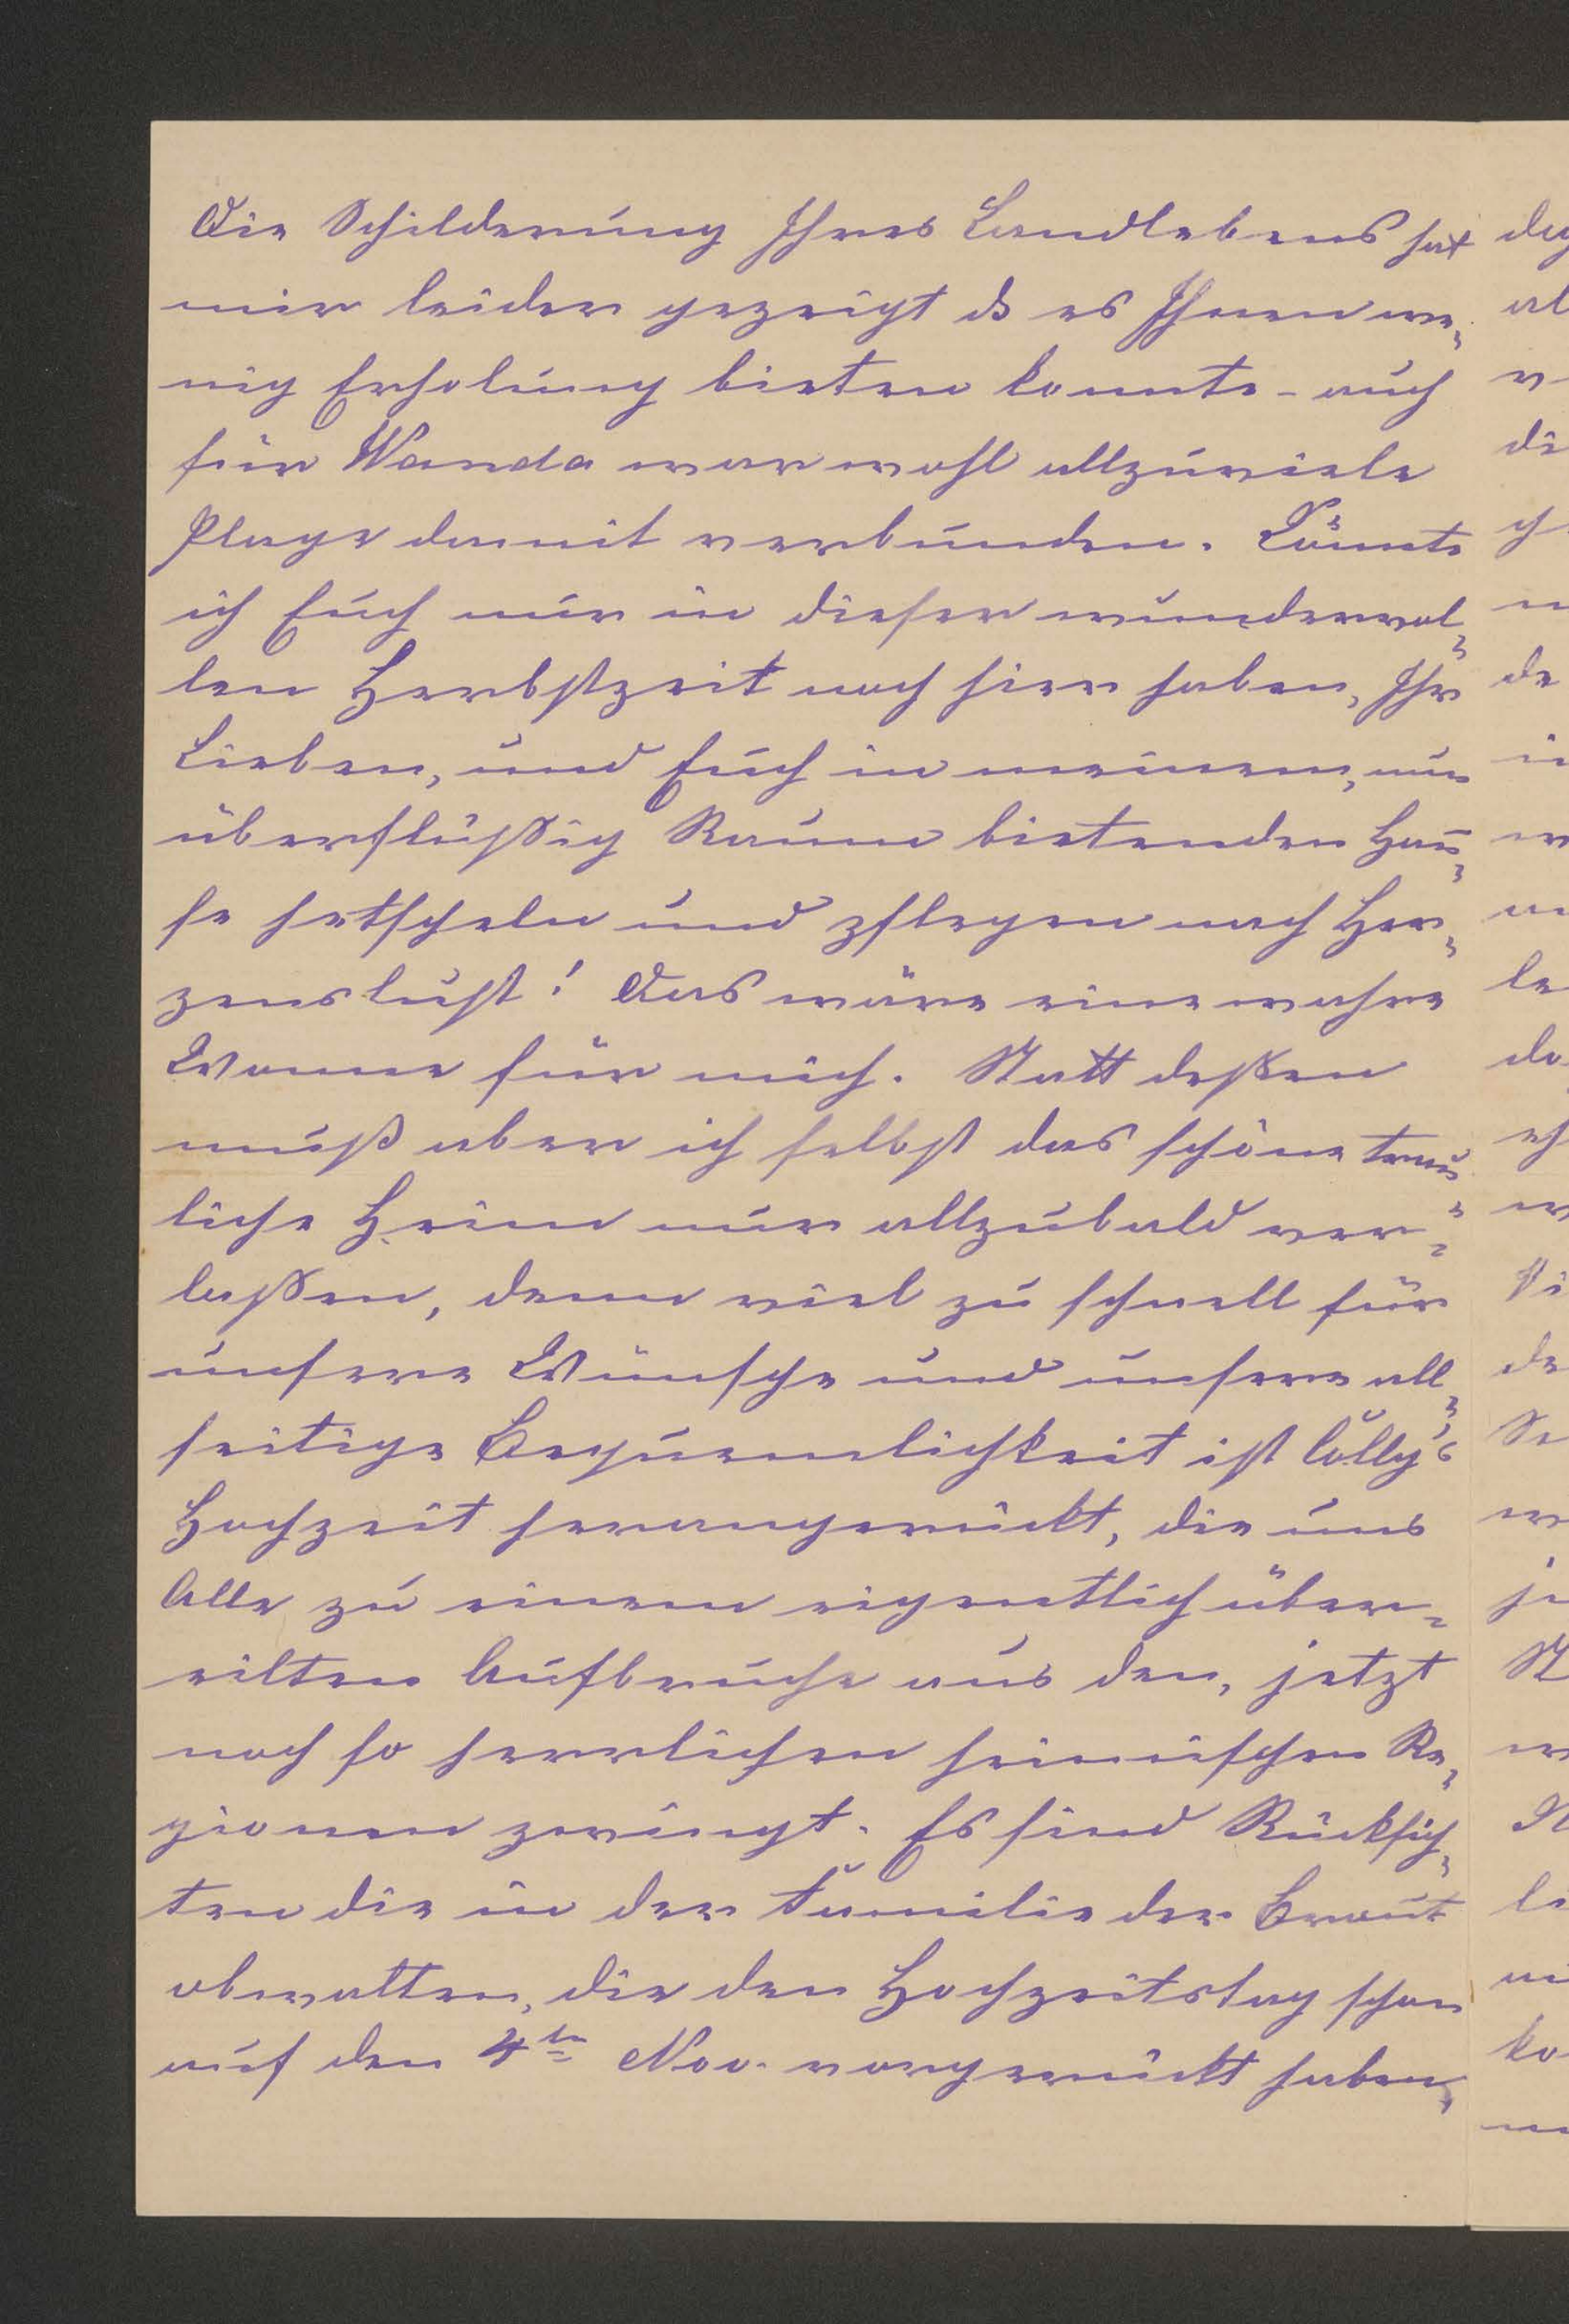 Die Schilderung Ihres Landlebens hat
mir leider gezeigt ds es Ihnen we„
nig Erholung bieten konnte - auch
für Wanda war wohl allzuviele
Plage damit verbunden. Könnte
ich Euch nur in dieser wundervol„
len Herbstzeit noch hier haben, Ihr
Lieben, und Euch in meinem, nun
überflüßig Raum bietenden Hau„
se hetscheln und pflegen nach Her„
zenslust! Das wäre eine wahre
Wonne für mich. Statt deßen
muß aber ich selbst das schöne trau„
liche Heim nur allzubald ver„
laßen, denn viel zu schnell für
unsere Wünsche und unsere all„
seitige Bequemlichkeit ist Lolly's
Hochzeit herangerückt, die uns
Alle zu einem eigentlich über„
eilten Aufbruche aus den, jetzt
noch so herrlichen heimischen Re„
gionen zwingt. Es sind Rücksich„
ten die in der Familie der Braut
obwalten, die den Hochzeitstag schon
auf den 4ten Nov. vorgerückt haben,